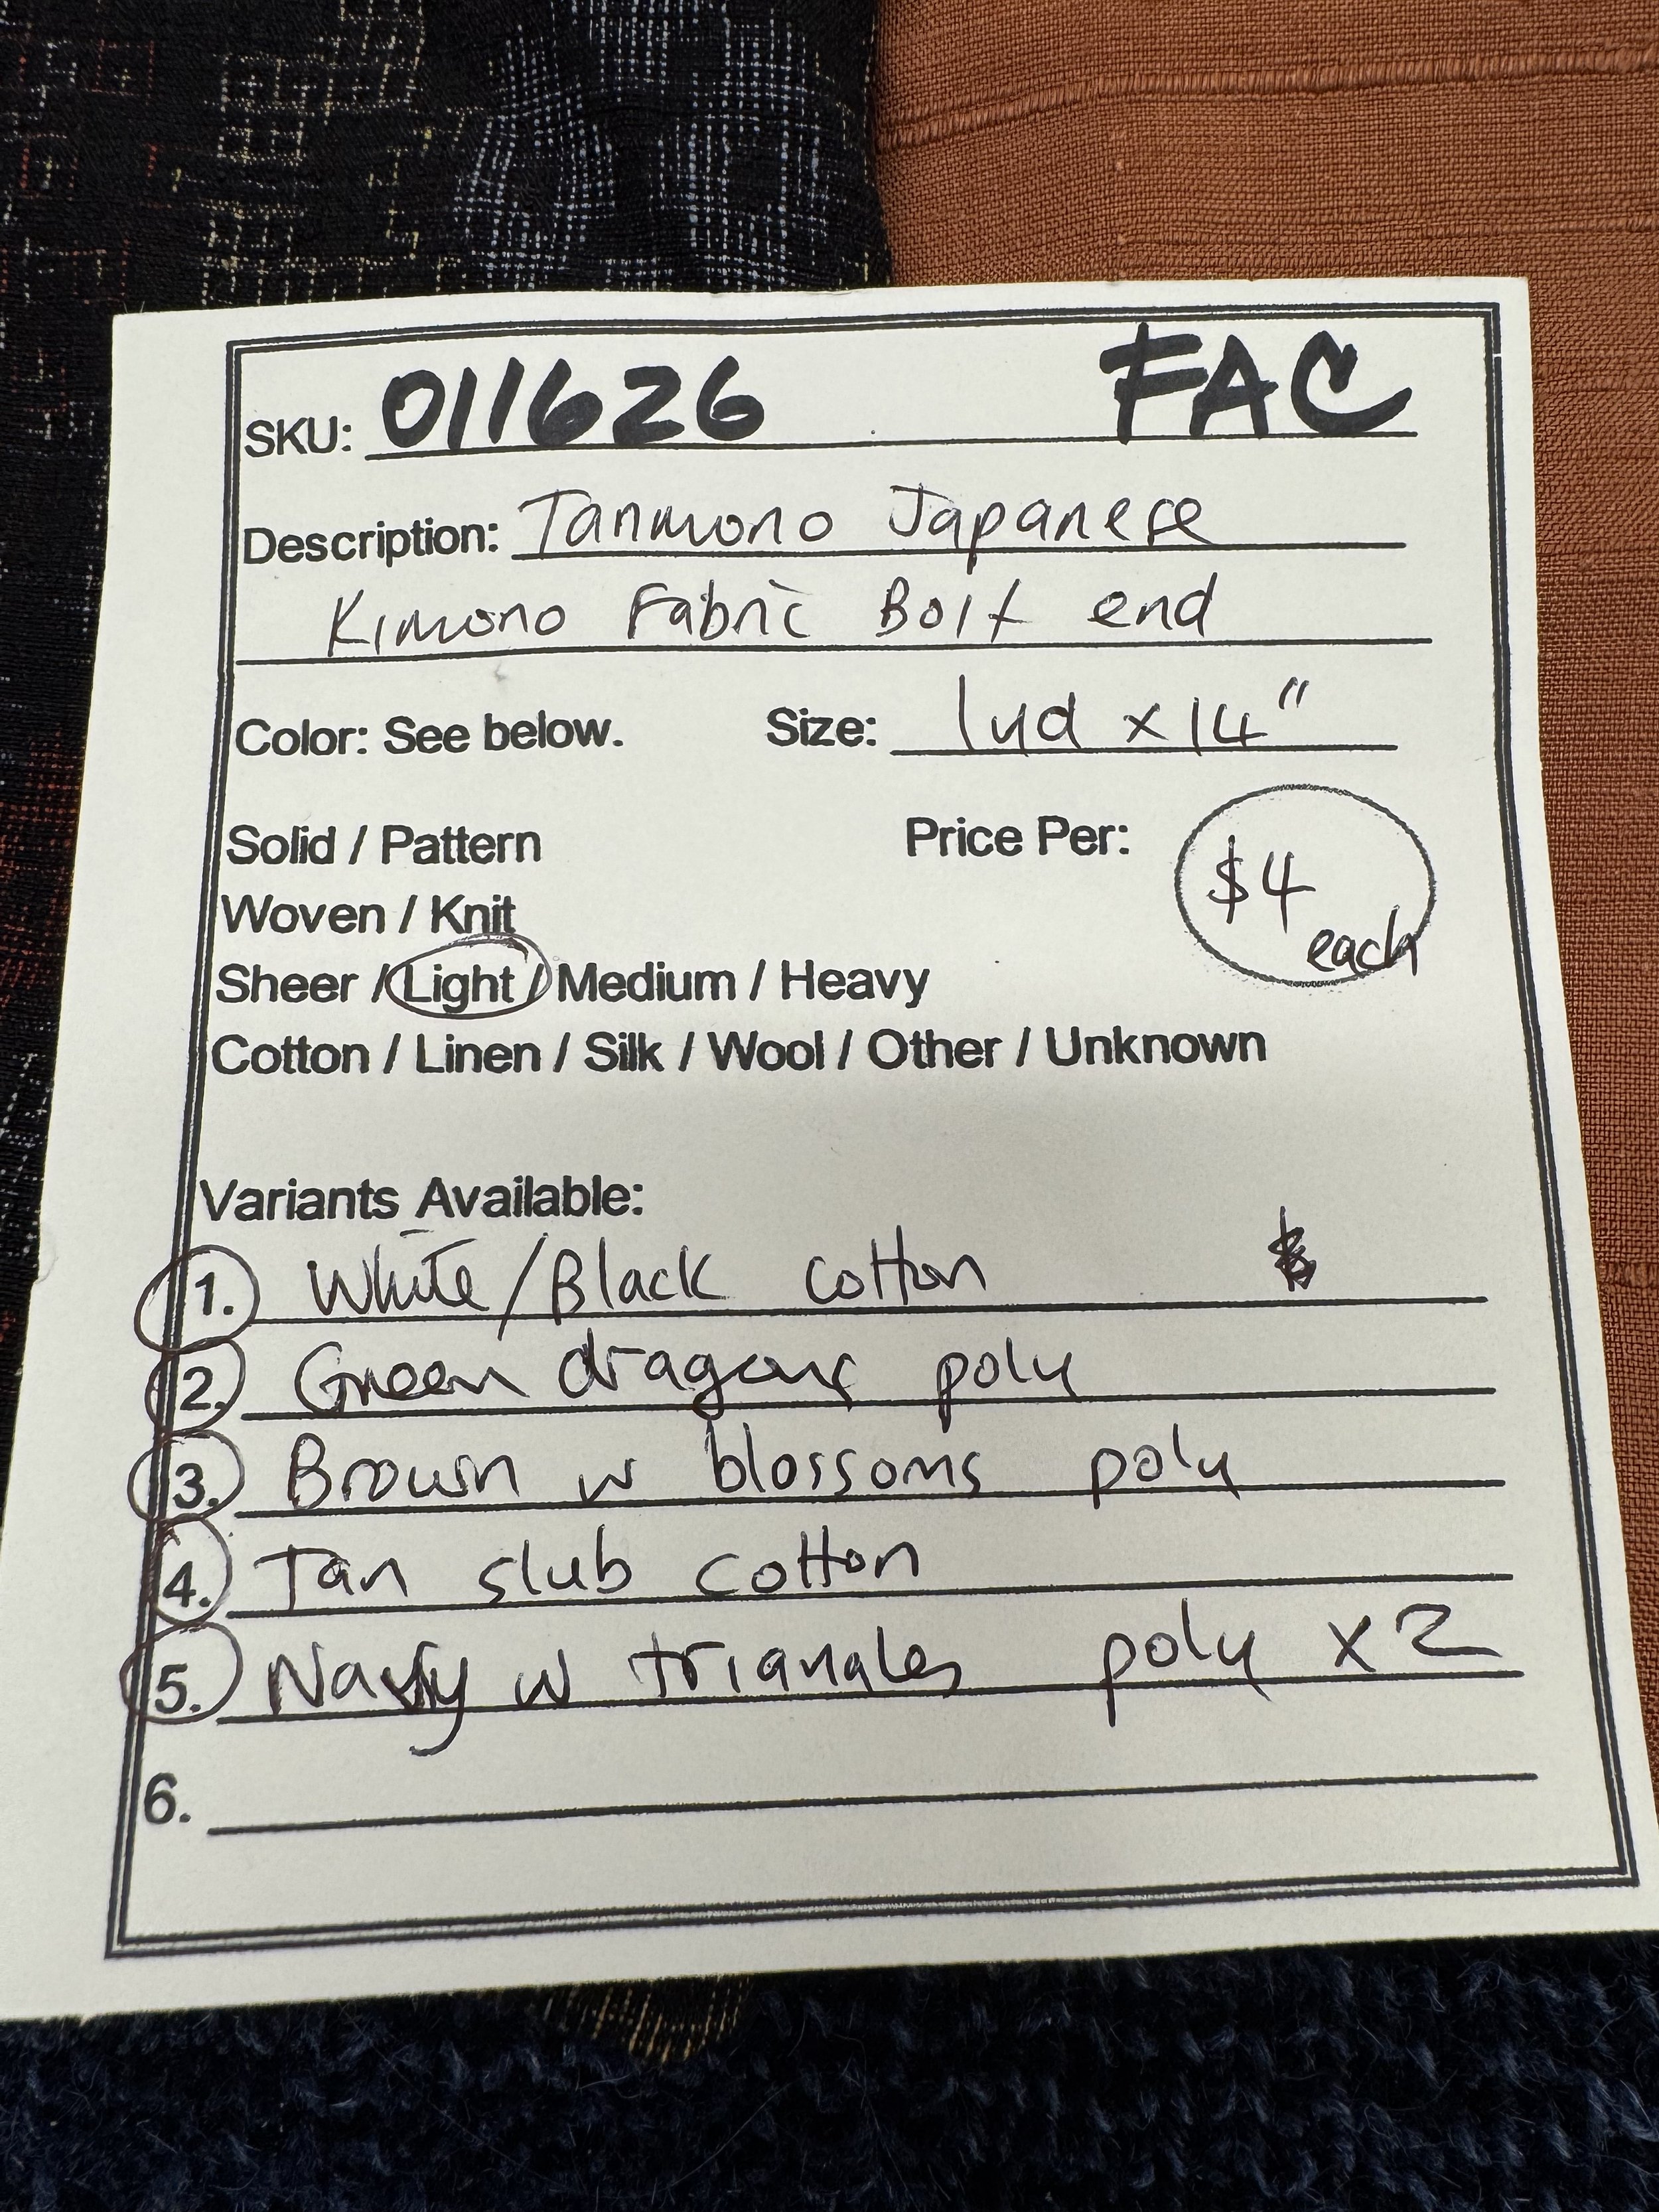 SKU: 011626 FAC
Description: Tanmono Japanese
Kimono Fabric Bolt end
Color: See below. Size: 1yd x 14"
Solid / Pattern Price Per: $4 each
Woven / Knit
Sheer / Light / Medium / Heavy
Cotton / Linen / Silk / Wool / Other / Unknown
Variants Available:
1. White/Black cotton $
2. Green dragons poly
3. Brown w blossoms poly
4. Tan slub cotton
5. Navy w triangles poly x2
6.